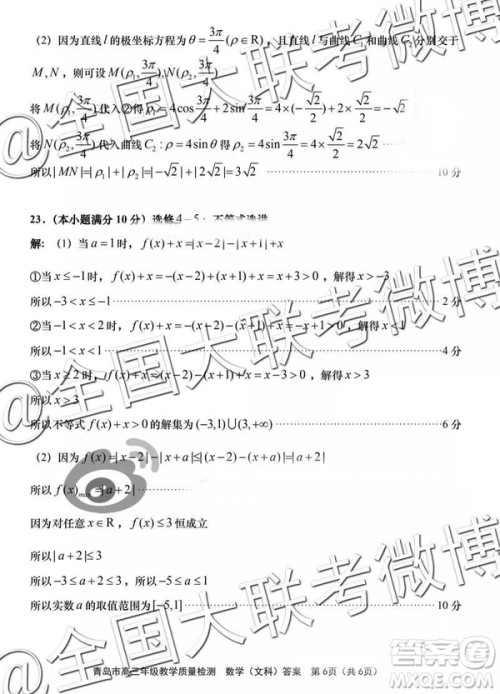 (2) 因为直线 l 的极坐标方程为 θ = 3π/4 (ρ∈R),且直线 l 与曲线 C₁ 和曲线 C₂ 分别交于
M, N,则可设 M(ρ₁, 3π/4), N(ρ₂, 3π/4)
将 M(ρ₁, 3π/4) 代入②得 ρ₁ = 4cos 3π/4 + 2sin 3π/4 = 4×(−√2/2) + 2×√2/2 = −√2
将 N(ρ₂, 3π/4) 代入 C₂: ρ = 4sinθ 得 ρ₂ = 4sin 3π/4 = 4×√2/2 = 2√2
所以 |MN| = |ρ₁| + |ρ₂| = |−√2| + |2√2| = 3√2 ………… 10 分
23.(本小题满分 10 分)选修 4−5:不等式选讲
解:(1) 当 a = 1 时, f(x) + x = |x − 2| − |x + 1| + x
①当 x ≤ −1 时, f(x) + x = −(x − 2) + (x + 1) + x = x + 3 > 0,解得 x > −3
所以 −3 < x ≤ −1 ………… 2 分
②当 −1 < x < 2 时, f(x) + x = −(x − 2) − (x + 1) + x = −x + 1 > 0,解得 x < 1
所以 −1 < x < 1 ………… 4 分
③当 x ≥ 2 时, f(x) + x = (x − 2) − (x + 1) + x = x − 3 > 0,解得 x > 3
所以 x > 3
所以不等式 f(x) + x > 0 的解集为 (−3,1)∪(3,+∞) ………… 6 分
(2) 因为 f(x) = |x − 2| − |x + a| ≤ |(x − 2) − (x + a)| = |a + 2|
所以 f(x)max = |a + 2|
因为对任意 x∈R, f(x) ≤ 3 恒成立
所以 |a + 2| ≤ 3
所以 −3 ≤ a + 2 ≤ 3,所以 −5 ≤ a ≤ 1
所以实数 a 的取值范围为 [−5,1] ………… 10 分
青岛市高三年级教学质量检测 数学(文科)答案 第 6页(共 6页)
@全国大联考微博
@全国大联考微博
答案圈